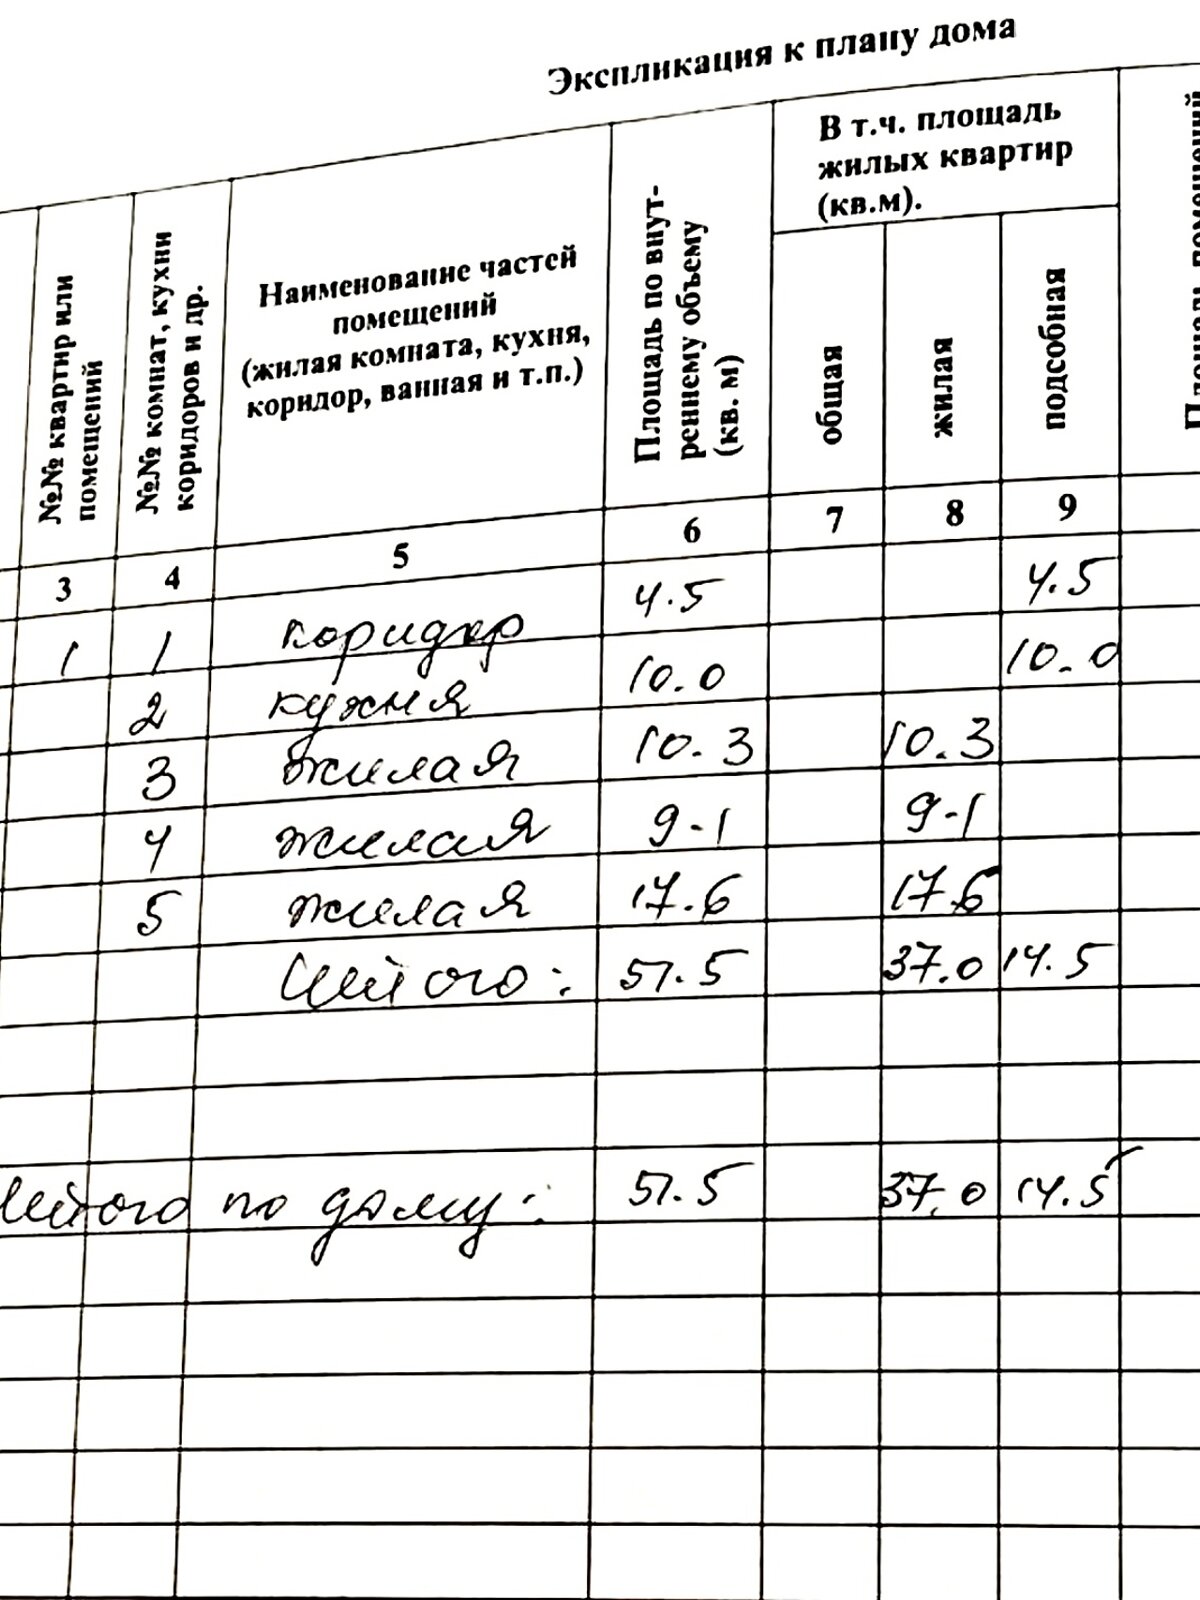 Экспликация к плану дома
№№ квартир или помещений
№№ комнат, кухни коридоров и др.
Наименование частей
помещений
(жилая комната, кухня,
коридор, ванная и т.п.)
Площадь по внут-
реннему объему
(кв. м)
В т.ч. площадь
жилых квартир
(кв.м).
общая
жилая
подсобная
3 4 5 6 7 8 9
1 1 коридор 4.5 4.5
2 кухня 10.0 10.0
3 жилая 10.3 10.3
4 жилая 9-1 9-1
5 жилая 17.6 17.6
Итого: 51.5 37.0 14.5
Итого по дому: 51.5 37.0 14.5